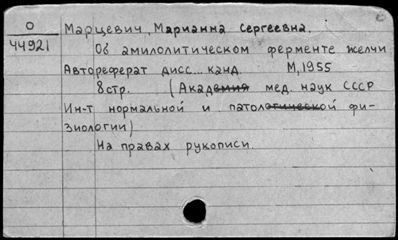 О
44921
Марцевич, Марианна Сергеевна.
Об амилолитическом ферменте желчи
Автореферат дисс... канд. М, 1955
8стр. (Академия мед. наук СССР
Ин-т нормальной и патологической фи-
зиологии)
На правах рукописи.